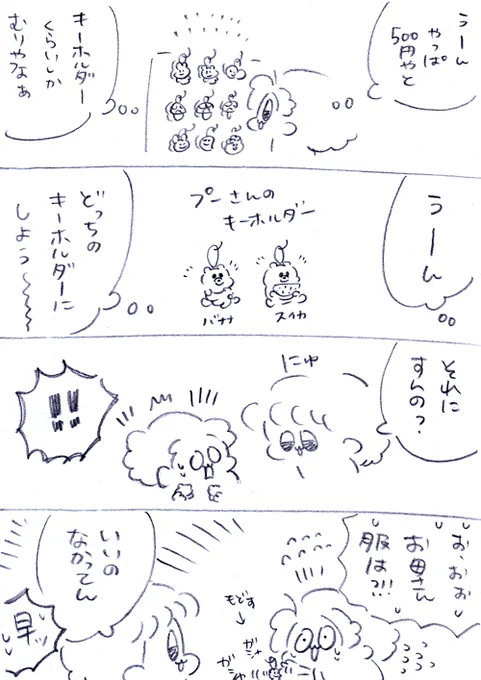 うーん
やっぱ
500円やと
キーホルダー
くらいしか
むりやなぁ
うーん
プーさんの
キーホルダー
スイカ
バナナ
どっちの
キーホルダーに
しよう〜〜〜
それに
すんの?
にゅ
!!
お、おお
お母さん
服は?!!
もどす
ガシャ
ガシャ
いいの
なかってん
早ッ